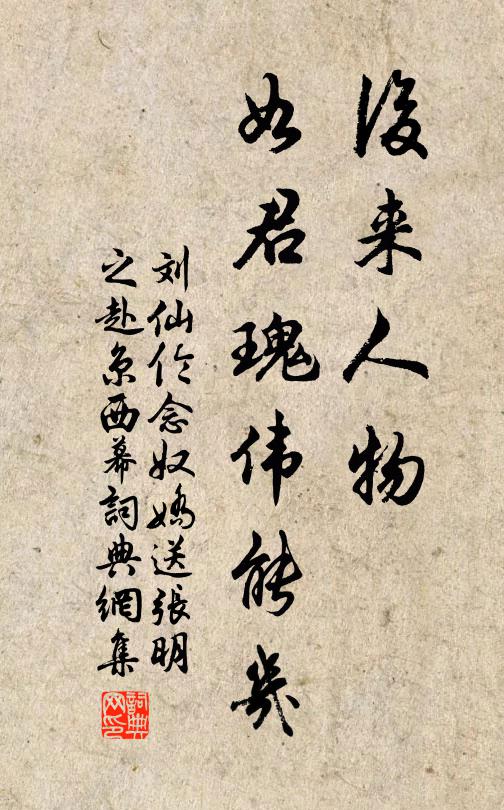 後来人物
如君瑰伟能几
刘仙伦念奴嬌送張明
之赴京西幕詞典網集
詞典网印